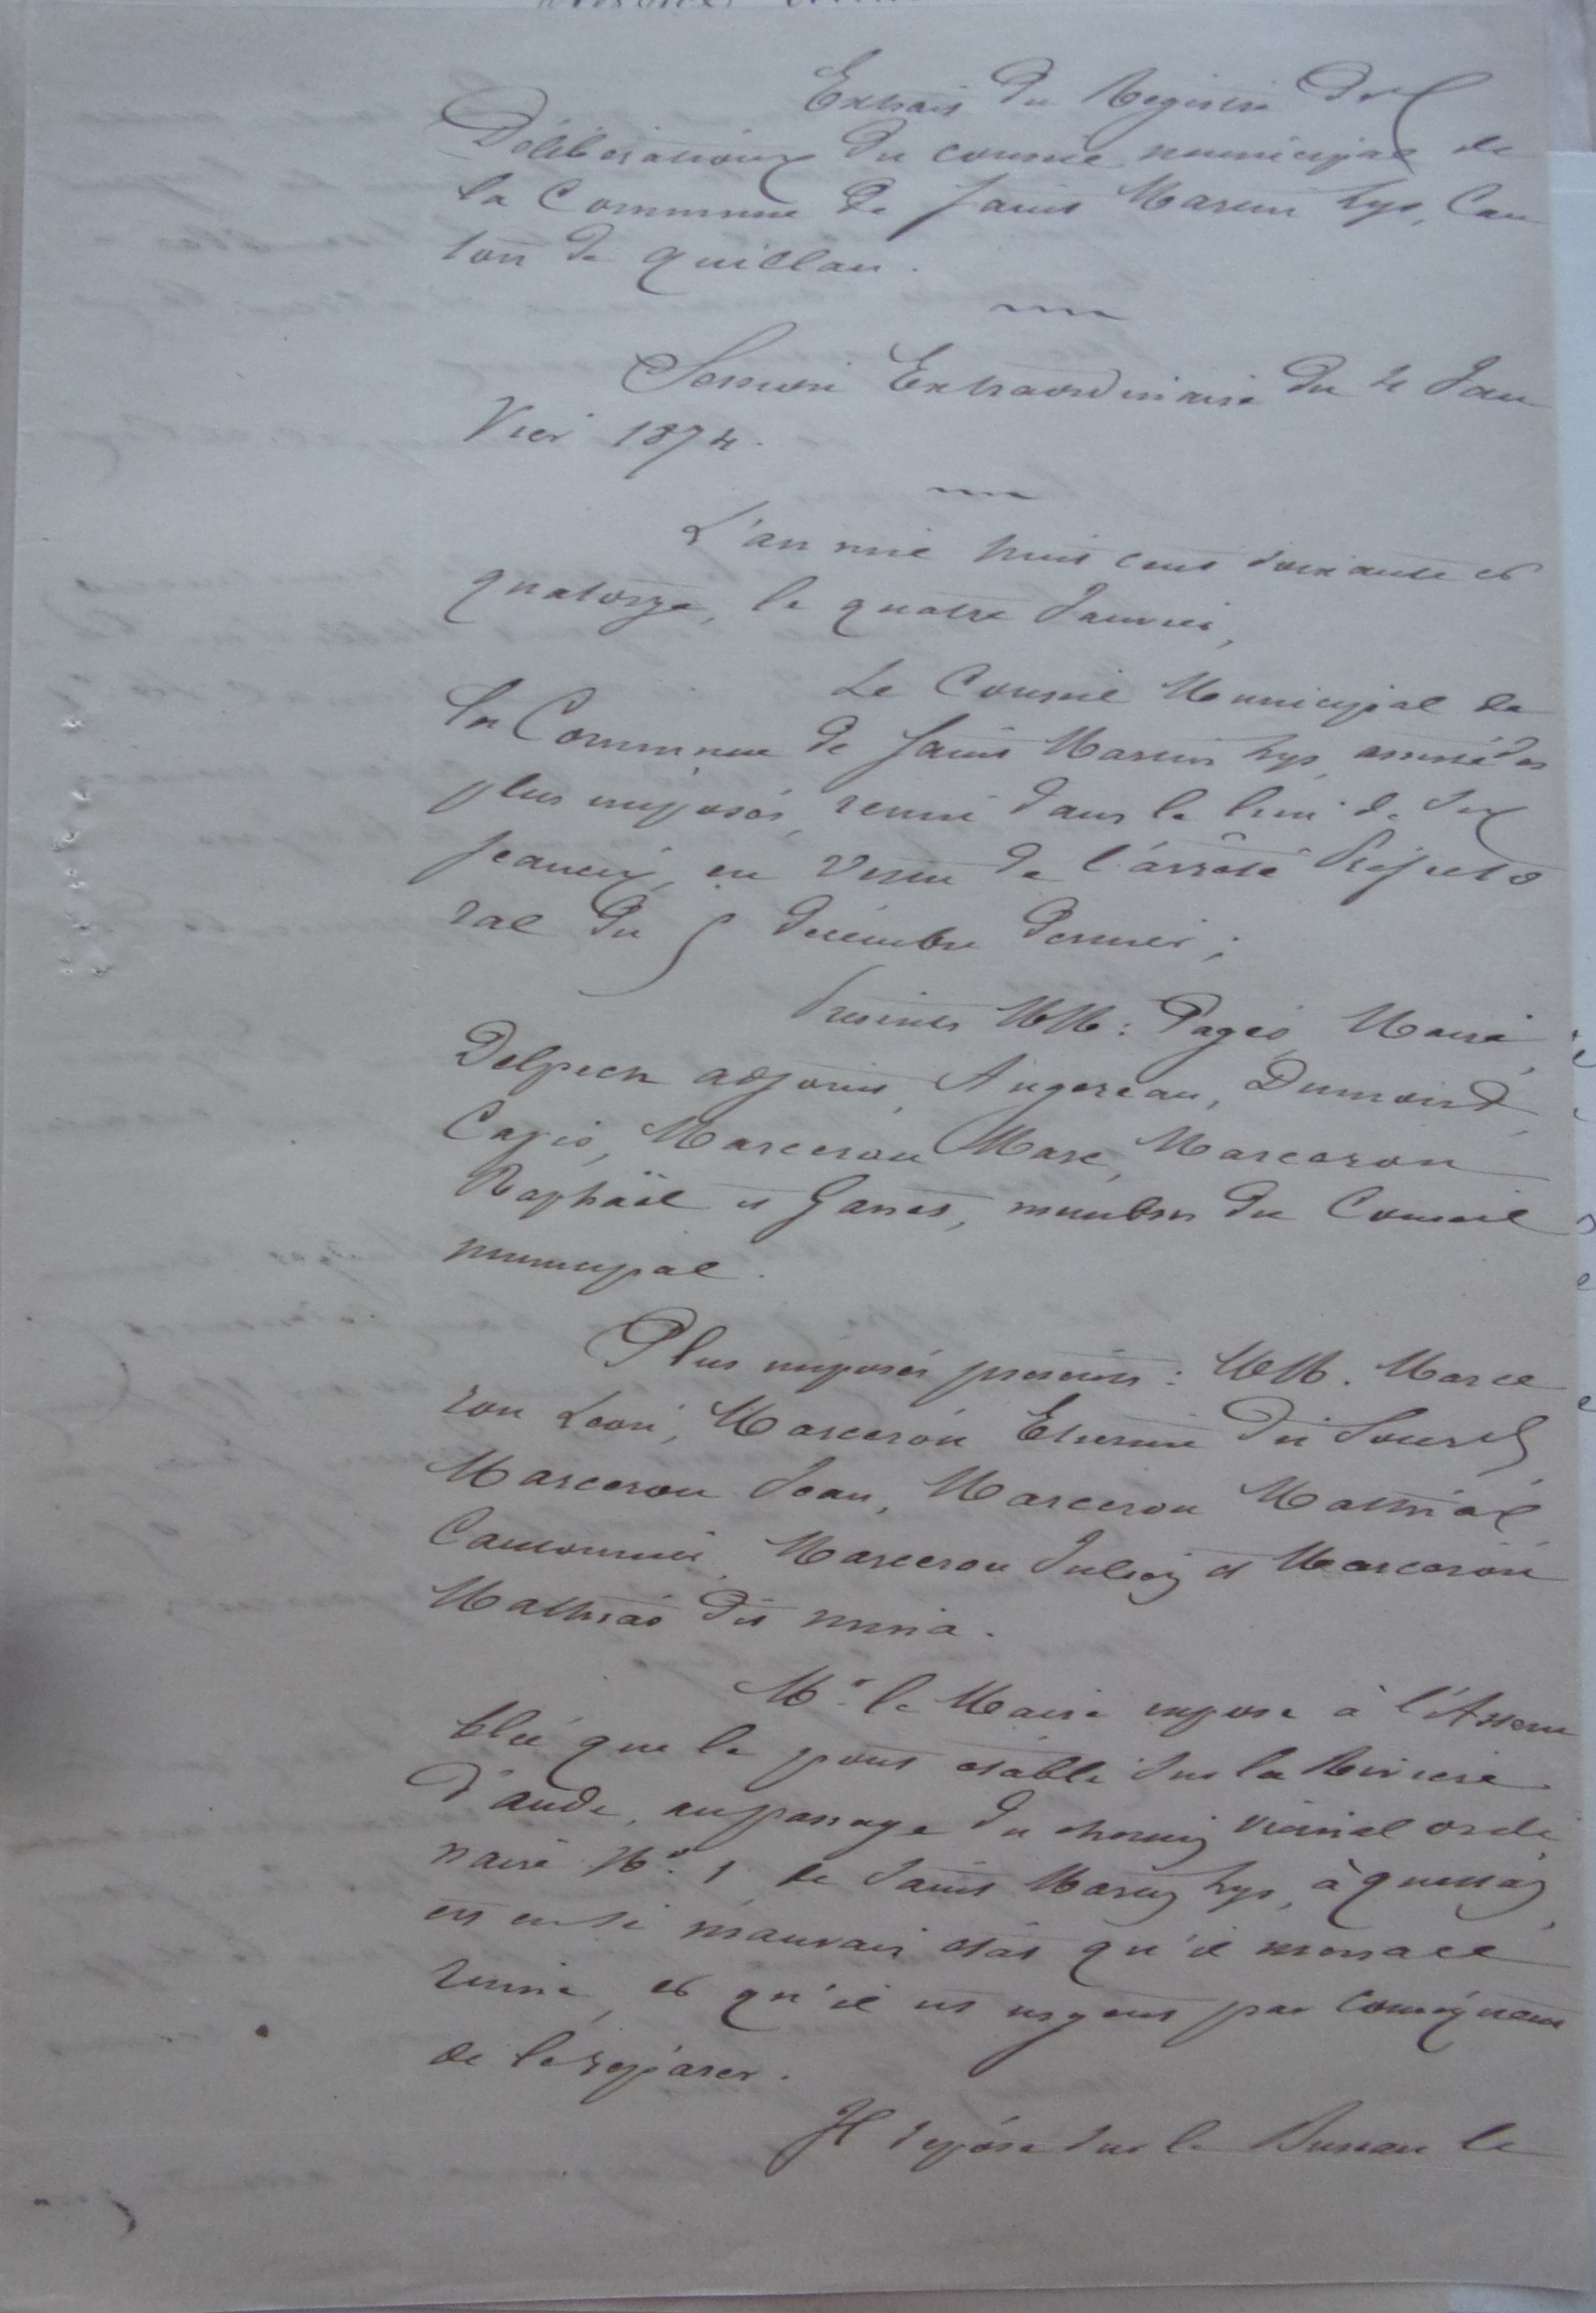 Extrait du Registre des
Délibérations du conseil municipal de
la Commune de Saint Martin Lys, Can
ton de Quillan.
Session Extraordinaire du 4 Jan
Vier 1874.
L'an mil huit cent soixante et
quatorze, le quatre Janvier,
Le Conseil Municipal de
la Commune de Saint Martin Lys, assisté des
plus imposés, réuni dans le lieu de ses
séances, en vertu de l'arrêté Préfecto
ral du 5 décembre dernier;
Présents MM: Pagès, Maire,
Delpech adjoint, Augereau, Dumond,
Marcerou Marc, Marceron
Raphaël et Garres, membres du Conseil
municipal.
Plus imposés présents: MM. Marce
rou Léon, Marcerou Etienne dit
Marcerou Jean, Marcerou Mathias
Cantonnier, Marcerou Julien et Marcerou
Mathias dit
Mr. le Maire expose à l'Assem
blée que le pont établi sur la Rivière
d'aude, au passage du chemin vicinal ordi
naire No. 1 de Saint Martin Lys, à
est en si mauvais état qu'il menace
ruine, et qu'il est urgent par conséquent
de le réparer.
Il dépose sur le Bureau le